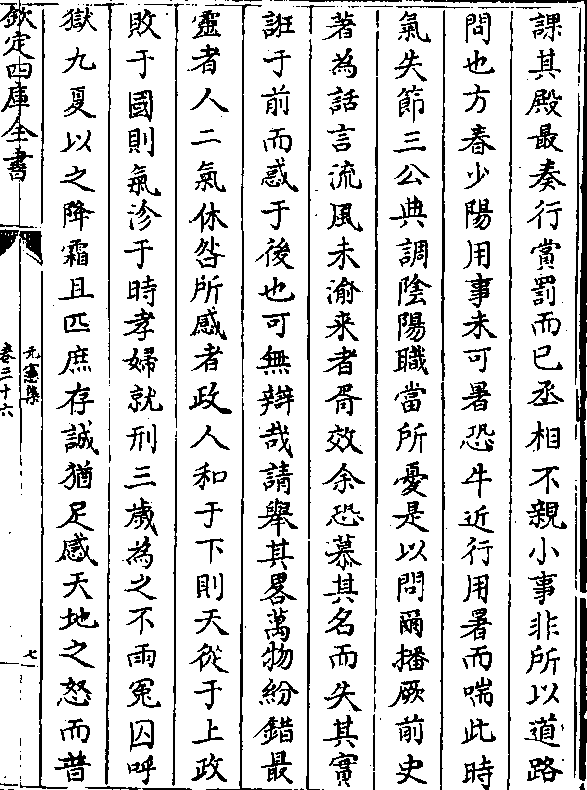 課其殿最奏行賞罰而已丞相不親小事非所以道路
問也方春少陽用事未可暑恐牛近行用暑而喘此時
氣失節三公典調陰陽職當所憂是以問爾播厥前史
著為話言流風未渝來者胥效余恐慕其名而失其實
誑于前而惑于後也可無辯哉請舉其畧萬物紛錯最
靈者人二氣休咎所感者政人和于下則天從于上政
敗于國則氣沴于時孝婦就刑三歲為之不雨冤囚呼
獄九夏以之降霜且匹庶存誠猶足感天地之怒而普
欽定四庫全書
元憲集
卷三十六
七